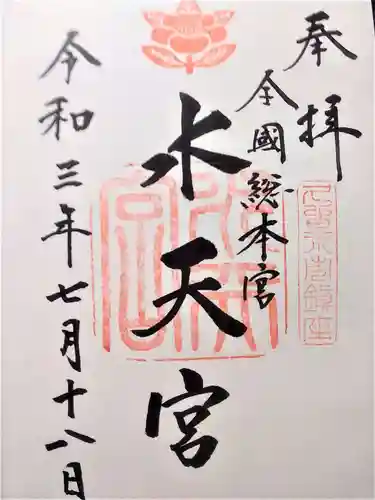 奉拝
全國総本宮
水天宮
令和三年七月十八日